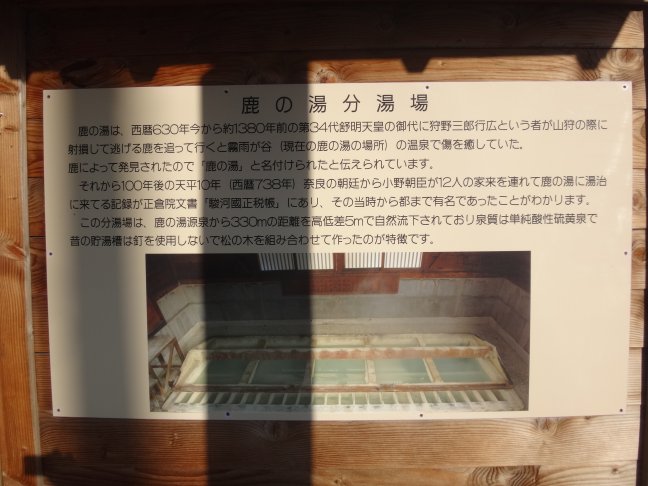 鹿の湯分湯場
鹿の湯は、西暦630年今から約1380年前の第34代舒明天皇の御代に狩野三郎行広という者が山狩の際に
射損じて逃げる鹿を追って行くと霧雨が谷（現在の鹿の湯の場所）の温泉で傷を癒していた。
鹿によって発見されたので「鹿の湯」と名付けられたと伝えられています。
それから100年後の天平10年（西暦738年）奈良の朝廷から小野朝臣が12人の家来を連れて鹿の湯に湯治
に来てる記録が正倉院文書「駿河國正税帳」にあり、その当時から都まで有名であったことがわかります。
この分湯場は、鹿の湯源泉から330mの距離を高低差5mで自然流下されており泉質は単純酸性硫黄泉で
昔の貯湯槽は釘を使用しないで松の木を組み合わせて作ったのが特徴です。